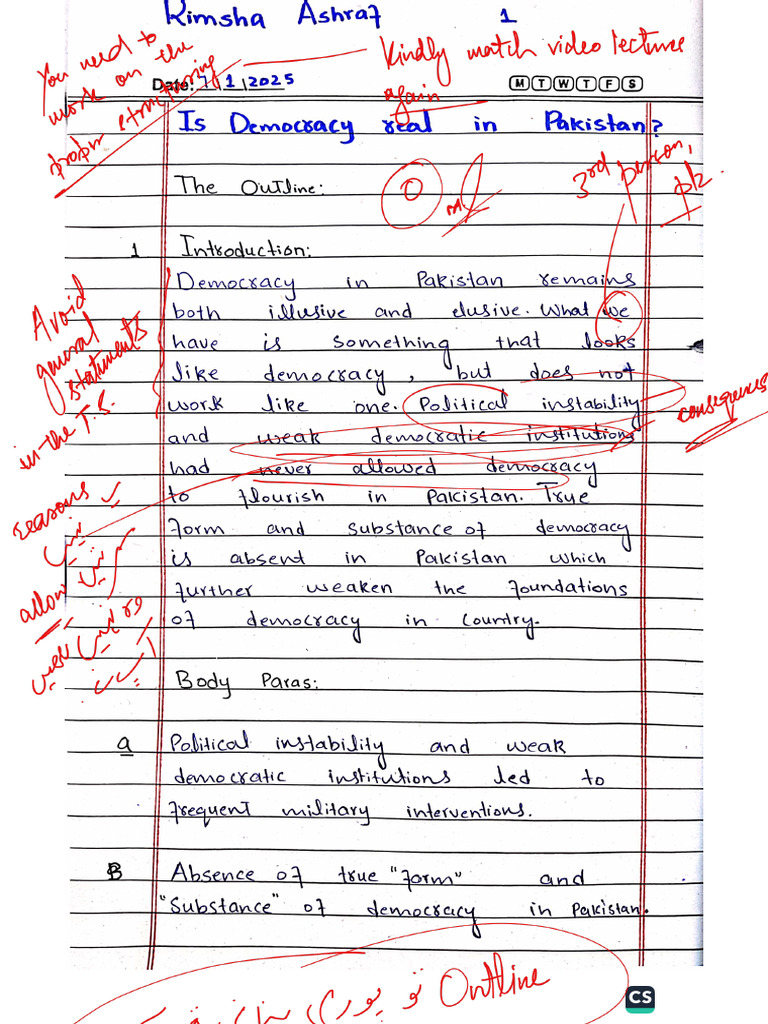 Rimsha Ashraf 1
You need to
work on the
proper structuring
Kindly watch video lectures
again
Date: 7/1/2025
M T W T F S
Is Democracy real in Pakistan?
The Outline:
0
3rd person,
plz.
1 Introduction:
Democracy in Pakistan remains
both illusive and elusive. What we
have is something that looks
like democracy, but does not
work like one. Political instability
and weak democratic institutions
had never allowed democracy
to flourish in Pakistan. True
form and substance of democracy
is absent in Pakistan which
further weaken the foundations
of democracy in country.
Avoid
general
statements
in the T.S.
consequences
reasons
نہیں
allow
Body Paras:
a Political instability and weak
democratic institutions led to
frequent military interventions.
B Absence of true "form" and
"Substance" of democracy in Pakistan.
Outline تو پوری
CS